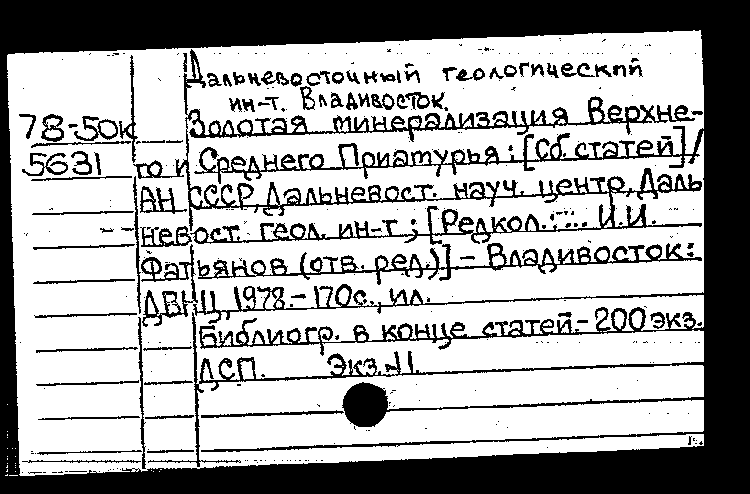 Дальневосточный геологический
ин-т. Владивосток.
78-50к Золотая минерализация Верхне-
5631 го и Среднего Приамурья: [Сб. статей]/
АН СССР, Дальневост. науч. центр, Даль
невост. геол. ин-т; [Редкол.: ... И.И.
Фатьянов (отв. ред.)] - Владивосток:
ДВНЦ, 1978.- 170с., ил.
Библиогр. в конце статей.- 200 экз.
ДСП. Экз. 11